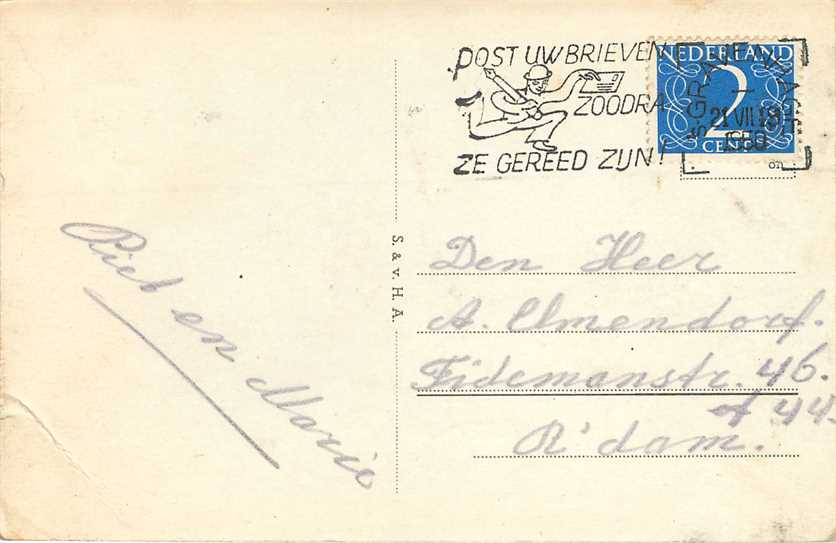 POST UW BRIEVEN
ZOODRA
ZE GEREED ZIJN!
NEDERLAND
2
CENT
'S-GRAVENHAGE
21 VII 18
S. & v. H. A.
Piet en Marie
Den Heer
A. Elmendorf.
Tidemanstr. 46.
of 44.
R'dam.